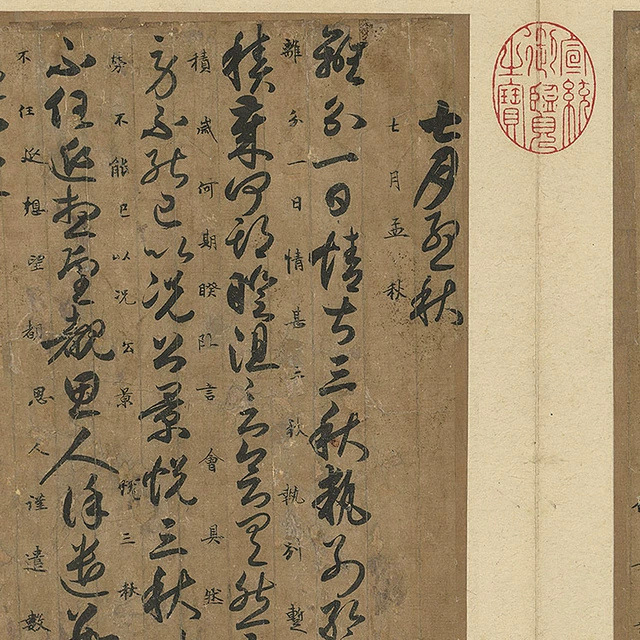 宣統
御覽
之寶
七月孟秋
七月孟秋
離分一日情甚三秋執別
離分一日情甚三秋執別暫
積歲何期睽阻言會具然
積歲何期睽阻言會具然
勞不能已以况公景悅三秋
勞不能已以况公景悅三秋
不任延想望覩思人謹遣
不任延想望都思人謹遣數